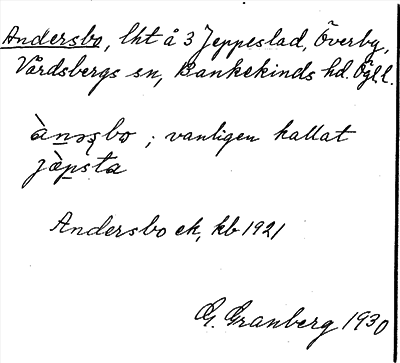 Andersbo, lht å 3 Jeppeslad, Överby,
Vårdsbergs sn, Bankekinds hd. Ögl. l.
; vanligen kallat
Andersbo ek, kb 1921
G. Granberg 1930